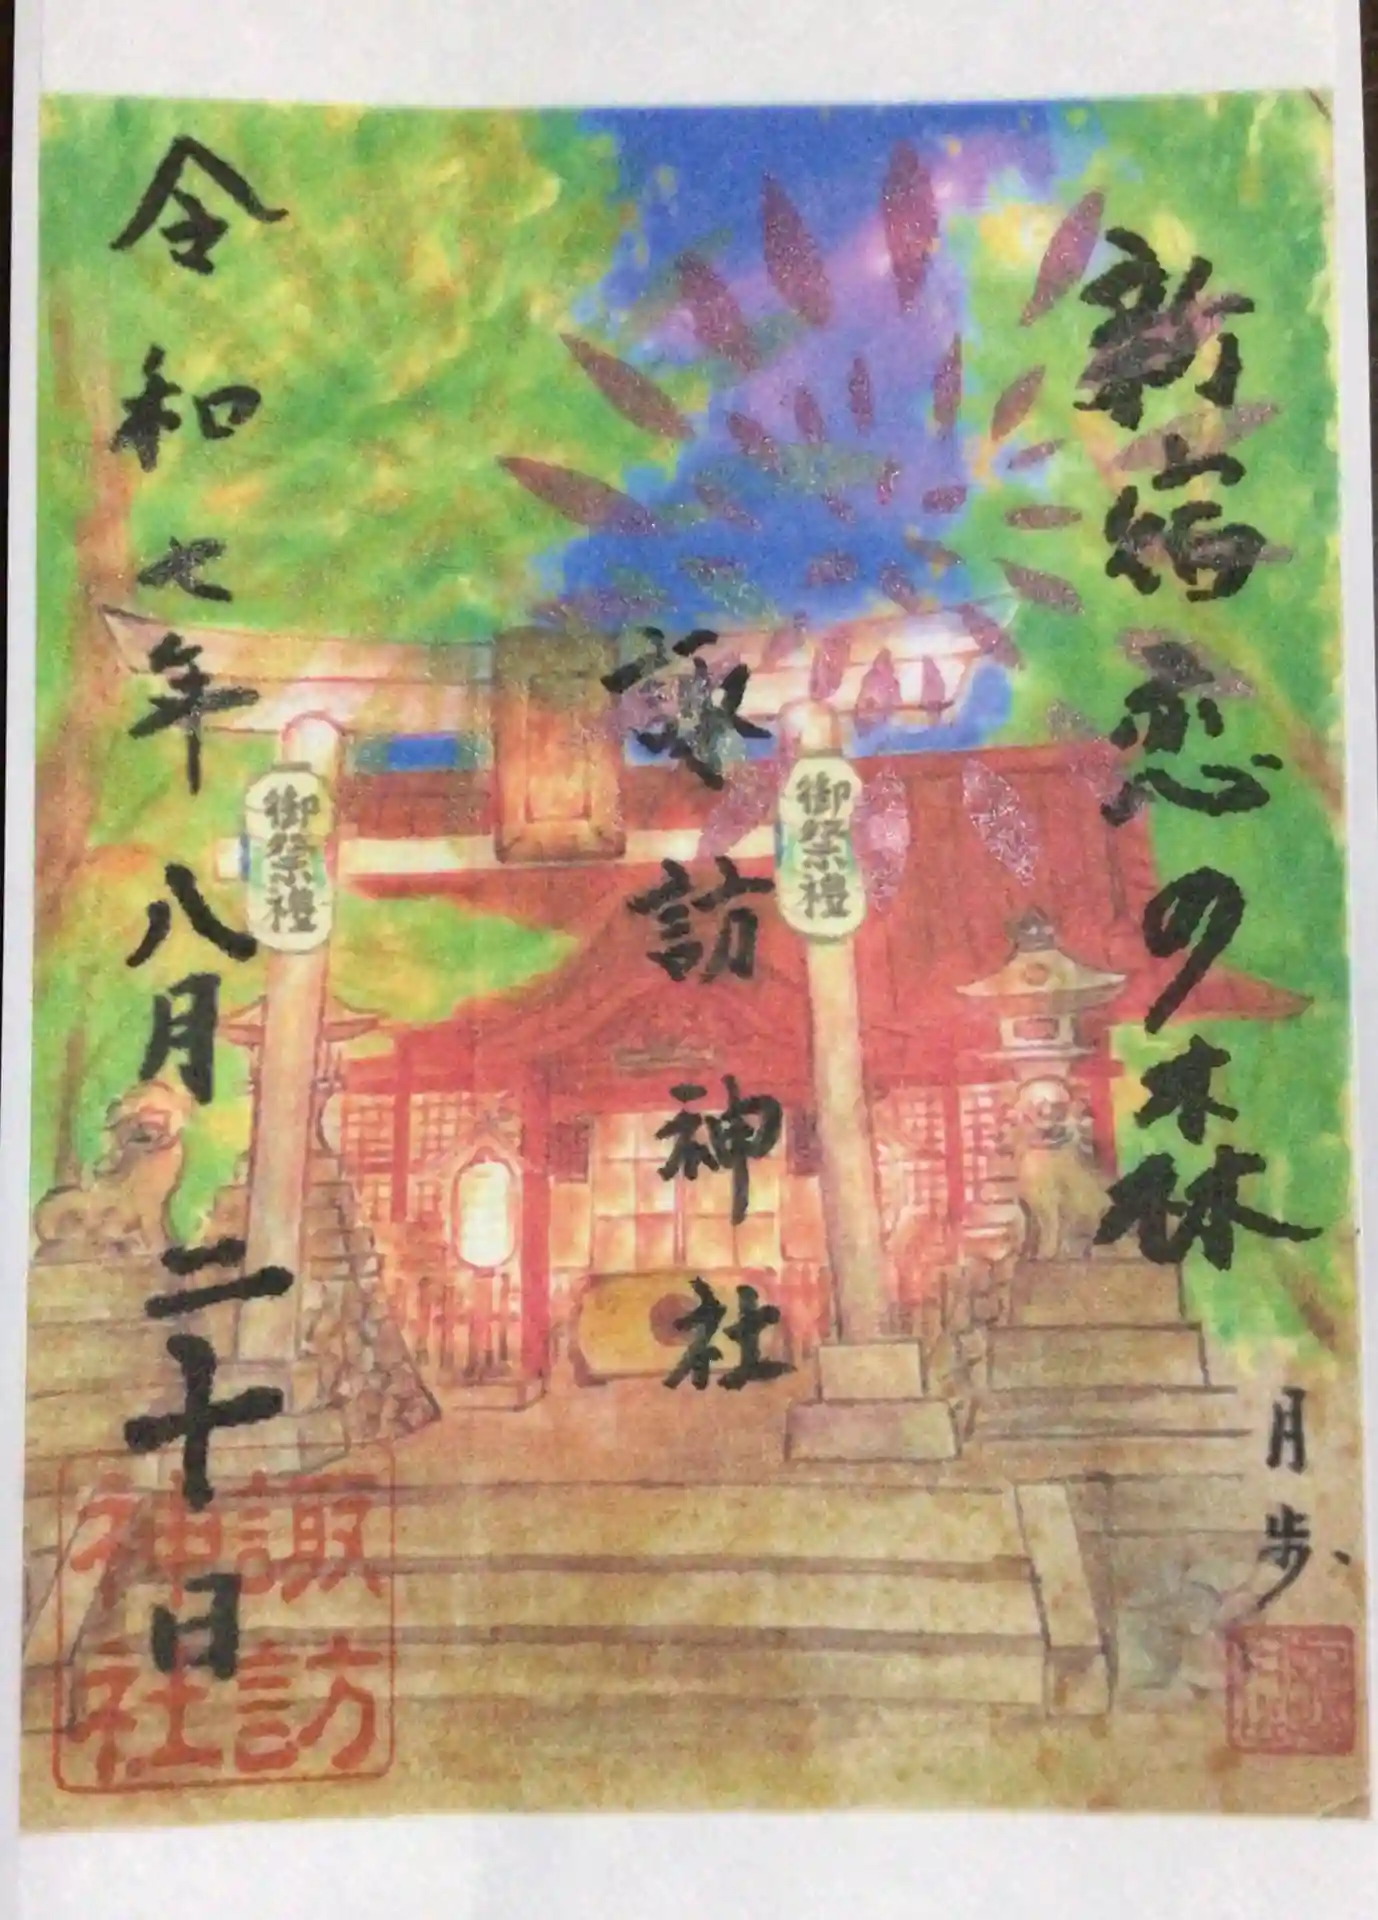 新宿恋の森
月歩
諏訪神社
御祭禮
御祭禮
令和七年八月二十日
諏訪神社